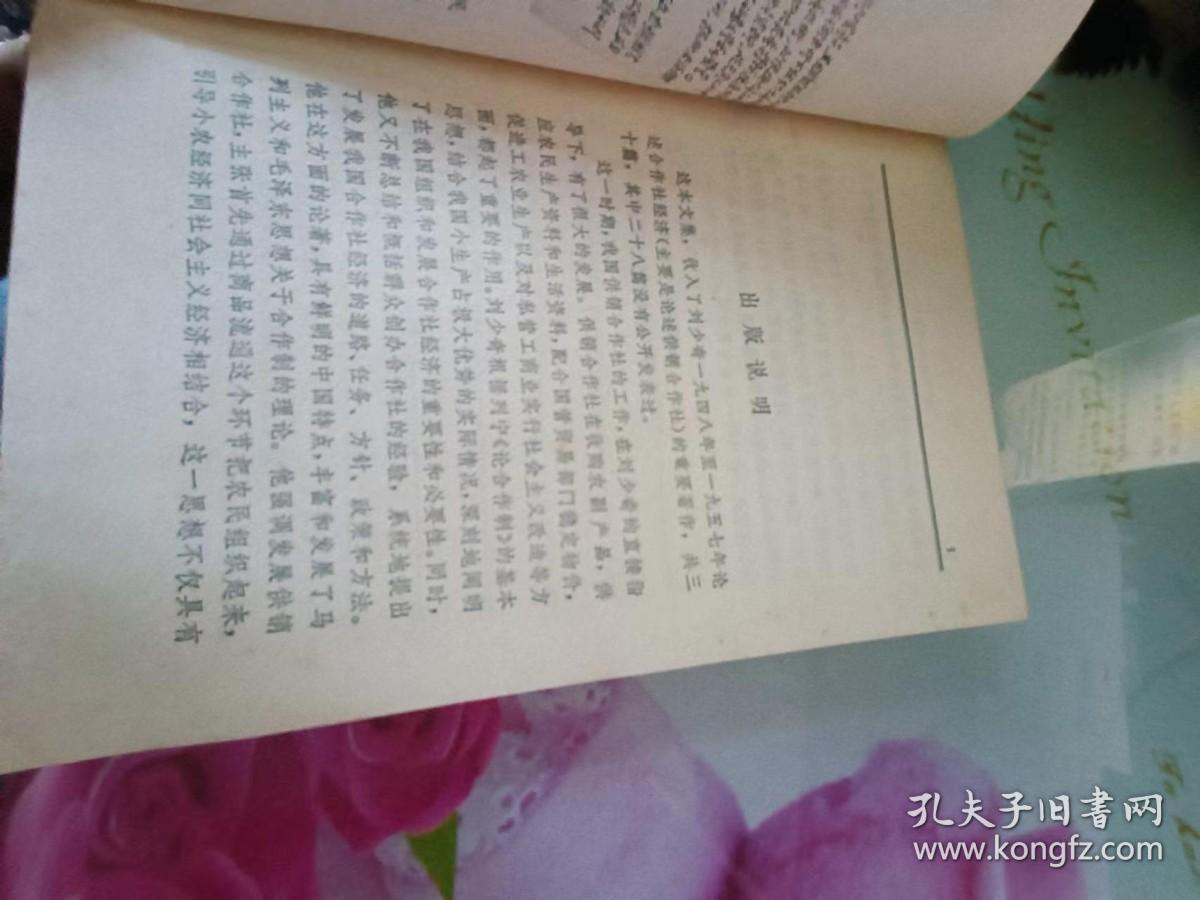 1
出版说明
这本文集,收入了刘少奇一九四八年至一九五七年论
述合作社经济(主要是论述供销合作社)的重要著作,共三
十篇,其中二十八篇没有公开发表过。
这一时期,我国供销合作社的工作,在刘少奇的直接指
导下,有了很大的发展。供销合作社在收购农副产品,供
应农民生产资料和生活资料,配合国营贸易部门稳定物价,
促进工农业生产以及对私营工商业实行社会主义改造等方
面,都起了重要的作用。刘少奇根据列宁《论合作制》的基本
思想,结合我国小生产占很大优势的实际情况,深刻地阐明
了在我国组织和发展合作社经济的重要性和必要性。同时,
他又不断总结和概括群众创办合作社的经验,系统地提出
了发展我国合作社经济的道路、任务、方针、政策和方法。
他在这方面的论著,具有鲜明的中国特点,丰富和发展了马
列主义和毛泽东思想关于合作制的理论。他强调发展供销
合作社,主张首先通过商品流通这个环节把农民组织起来,
引导小农经济同社会主义经济相结合,这一思想不仅具有
孔夫子旧书网
www.kongfz.com